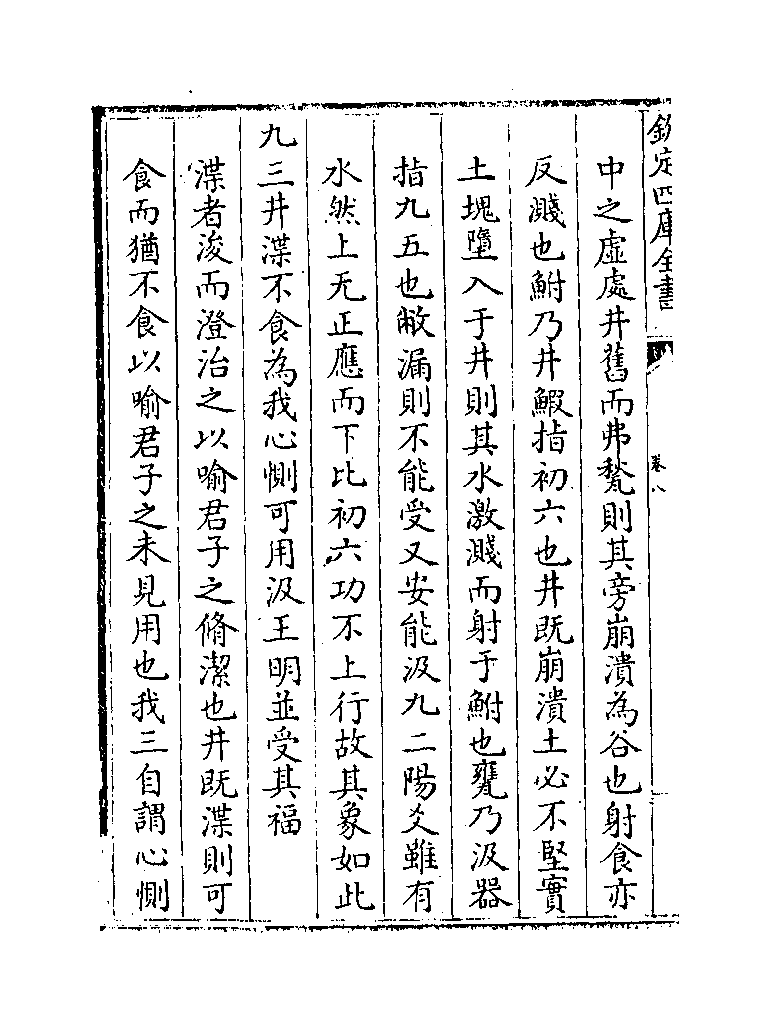 欽定四庫全書
卷八
中之虛處井舊而弗甃則其旁崩潰為谷也射食亦
反濺也鮒乃井鰕指初六也井既崩潰土必不堅實
土塊墮入于井則其水激濺而射于鮒也甕乃汲器
指九五也敝漏則不能受又安能汲九二陽爻雖有
水然上无正應而下比初六功不上行故其象如此
九三井渫不食為我心惻可用汲王明並受其福
渫者浚而澄治之以喻君子之脩潔也井既渫則可
食而猶不食以喻君子之未見用也我三自謂心惻